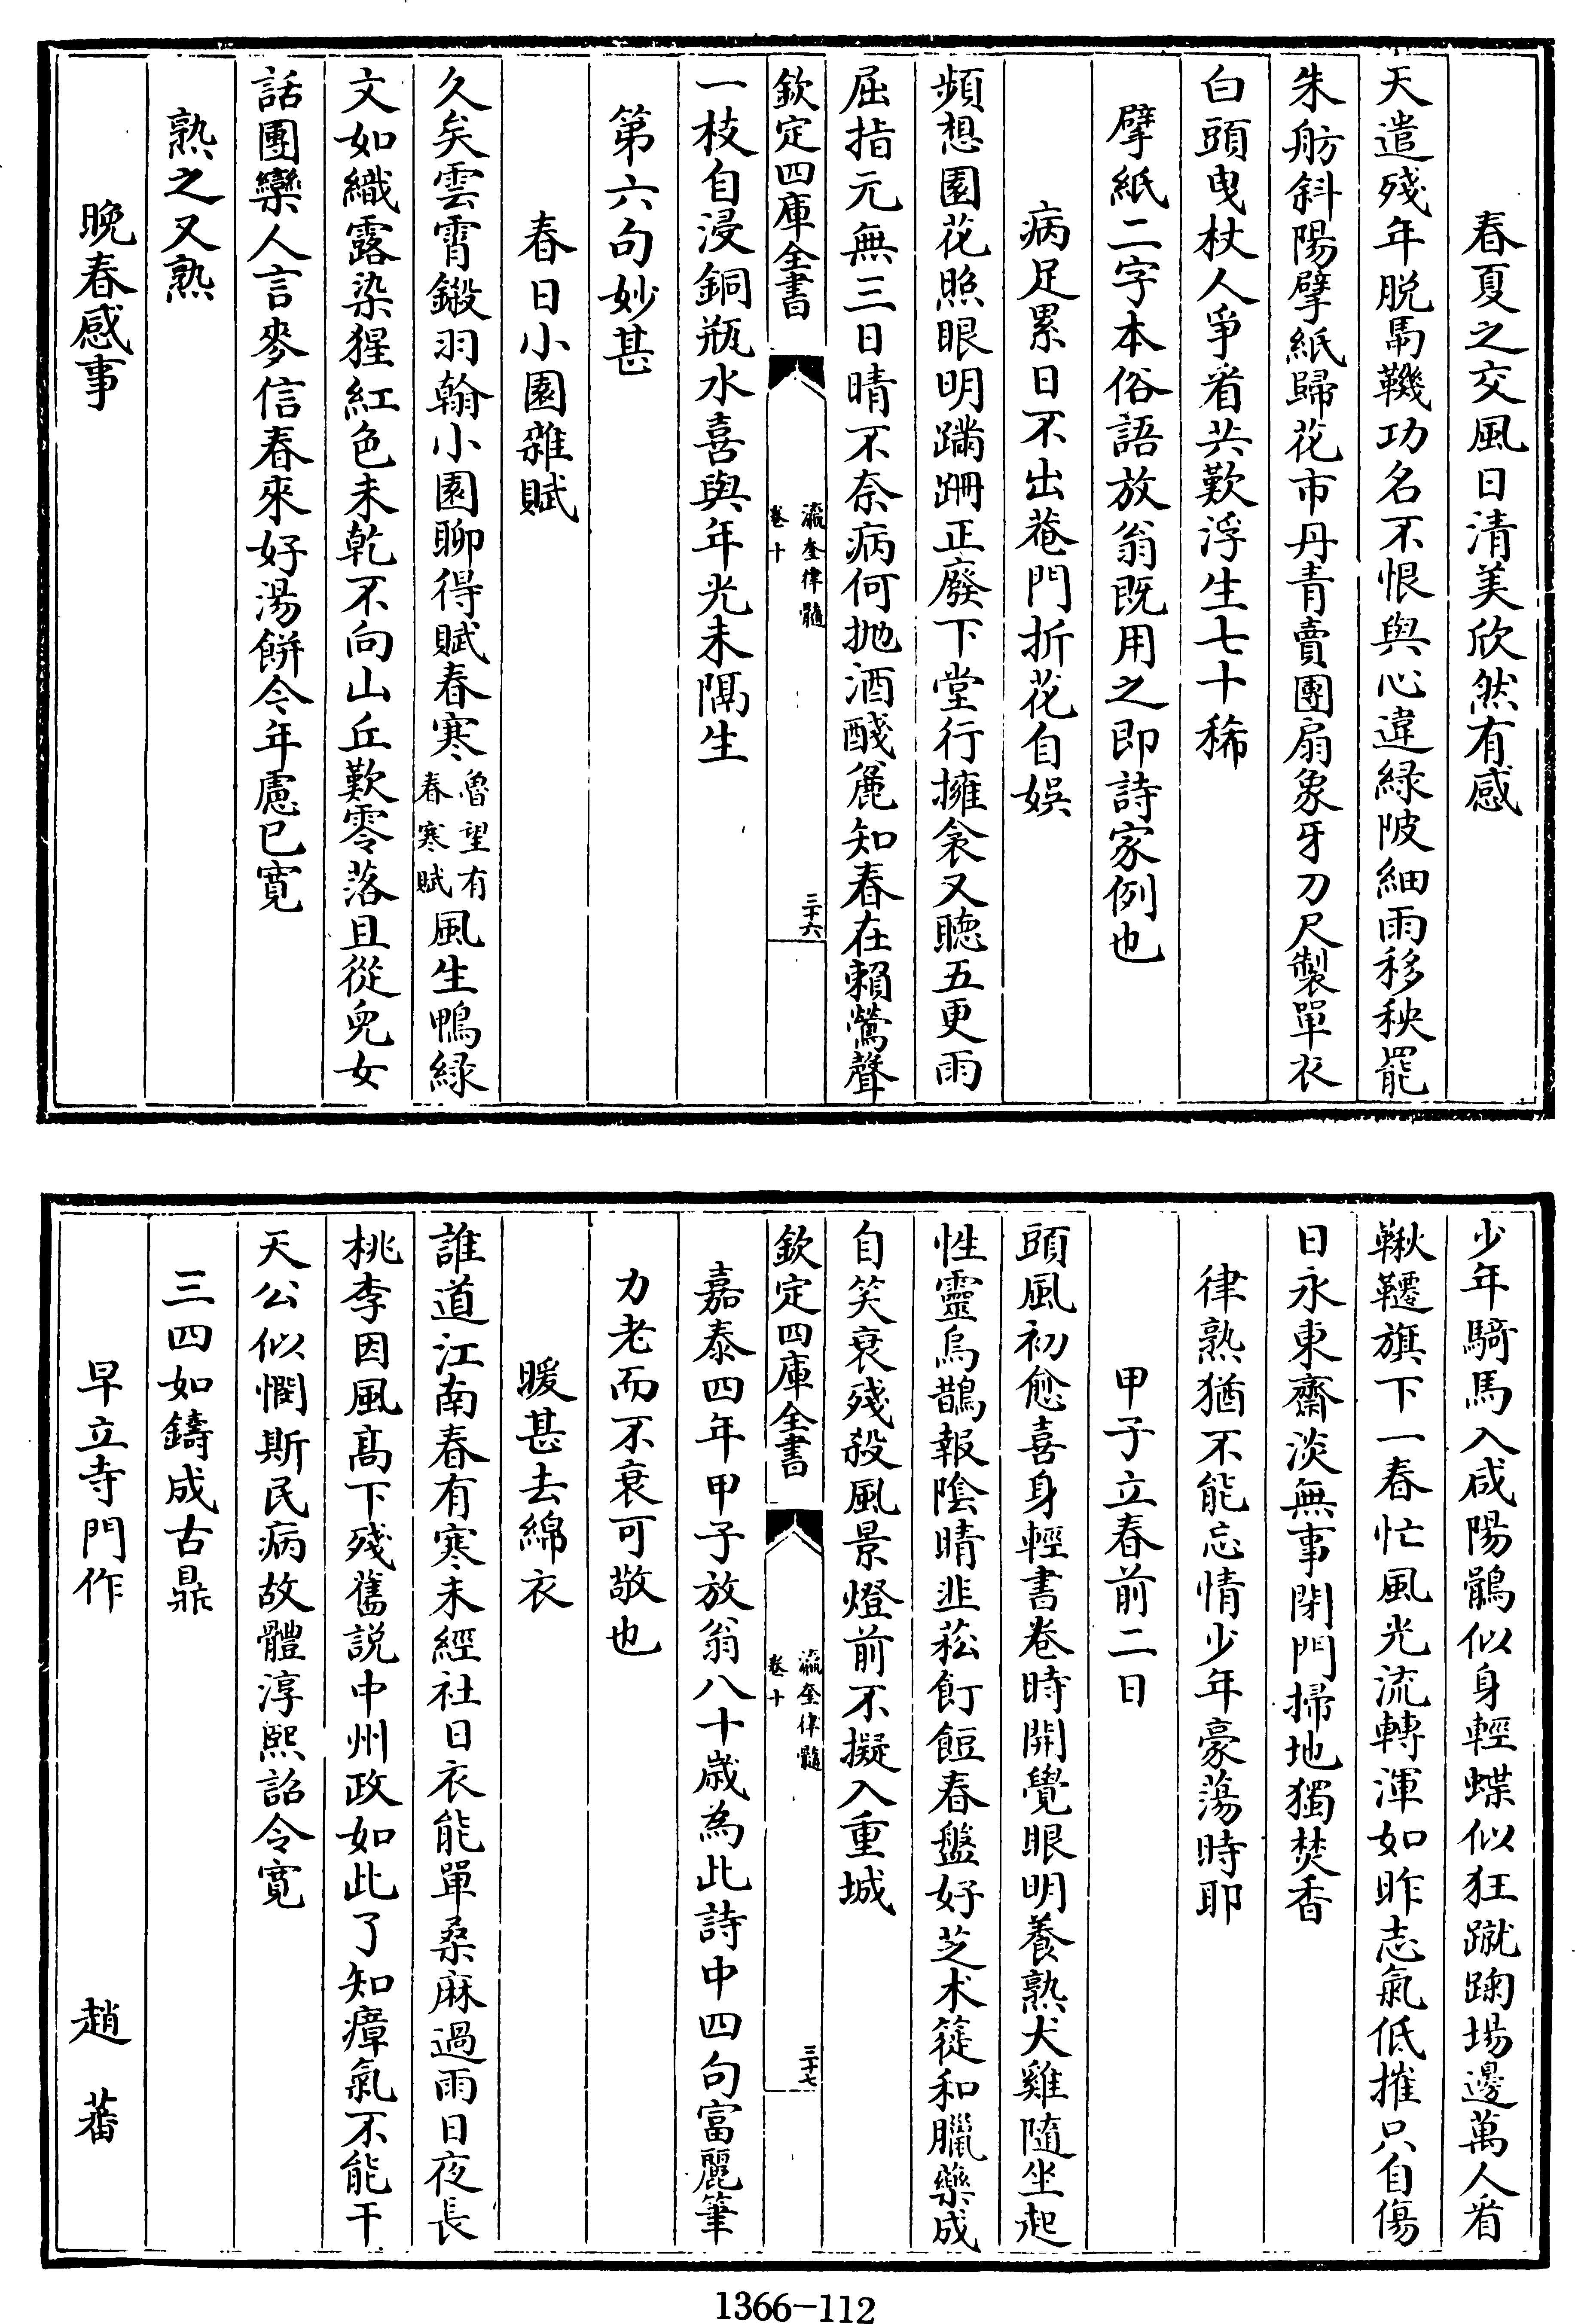 春夏之交風日清美欣然有感
天遣殘年脱馽鞿功名不恨與心違緑陂細雨移秧罷
朱舫斜陽擘紙歸花市丹青賣團扇象牙刀尺製單衣
白頭曳杖人爭看共歎浮生七十稀
擘紙二字本俗語放翁既用之即詩家例也
病足累日不出菴門折花自娯
頻想園花照眼明蹣跚正廢下堂行擁衾又聴五更雨
屈指元無三日晴不奈病何抛酒醆麄知春在賴鶯聲
欽定四庫全書
瀛奎律髓
卷十
三十六
一枝自浸銅瓶水喜與年光未隔生
第六句妙甚
春日小園雜賦
久矣雲霄鎩羽翰小園聊得賦春寒魯望有春寒賦風生鴨緑
文如織露染猩紅色未乾不向山丘歎零落且從兒女
話團欒人言麥信春來好湯餅今年慮已寛
熟之又熟
晩春感事
少年騎馬入咸陽鶻似身輕蝶似狂蹴踘場邊萬人看
鞦韆旗下一春忙風光流轉渾如昨志氣低摧只自傷
日永東齋淡無事閉門掃地獨焚香
律熟猶不能忘情少年豪蕩時耶
甲子立春前二日
頭風初愈喜身輕書卷時開覺眼明養熟犬雞隨坐起
性靈烏鵲報陰晴韭菘飣餖春盤好芝朮簁和臘藥成
自笑衰殘殺風景燈前不擬入重城
欽定四庫全書
瀛奎律髓
卷十
三十七
嘉泰四年甲子放翁八十歳為此詩中四句富麗筆
力老而不衰可敬也
暖甚去綿衣
誰道江南春有寒未經社日衣能單桑麻過雨日夜長
桃李因風髙下殘舊説中州政如此了知瘴氣不能干
天公似憫斯民病故體淳熙詔令寛
三四如鑄成古鼎
早立寺門作
趙蕃
1366-112